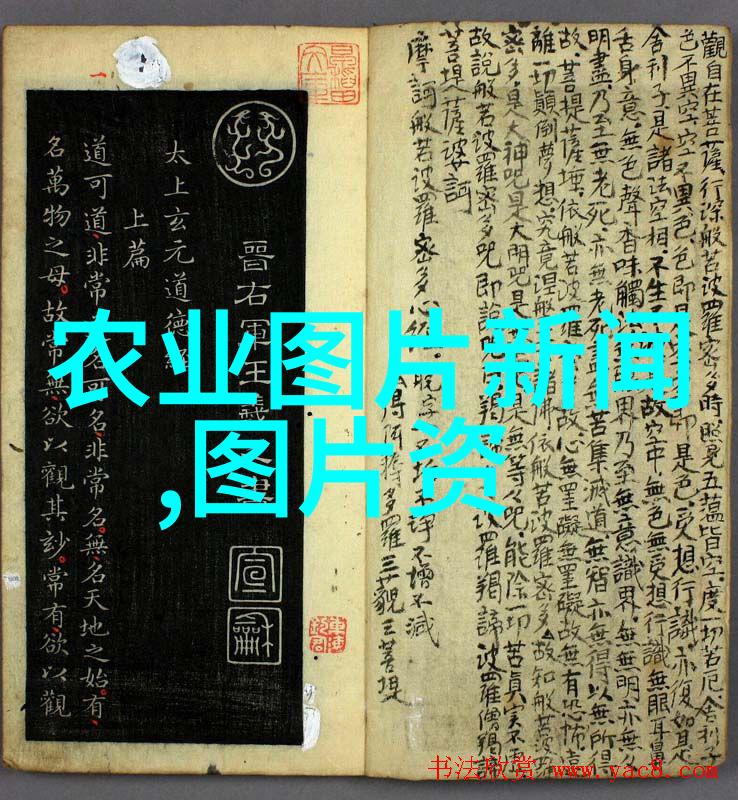 农业图片新闻
,图片资
觀自在菩薩行深般若波羅蜜多時照見五蘊皆空度一切苦厄舍利子
色不異空空不異色色即是 即是色受想行識亦復如是
舍利子是諸法空相不生 故空中無色無受想行識無眼耳鼻
舌身意無色聲香味觸法 界乃至無意識界無無明亦無
明盡乃至無老死亦無老死盡無苦集滅道無智亦無得以無所得
故菩提薩埵依般若波羅 故心無罣礙無罣礙故無有恐怖遠
離一切顛倒夢想究竟涅槃 諸佛依般若波羅密多故知般若波羅
密多是大神咒是大明咒是 是無等々咒能除一切苦真实不虛
故說般若波羅密多咒即說咒曰揭諦 波羅揭諦波羅僧揭諦
菩提薩婆訶
摩訶般若波羅密多心經 脫字 不垢不淨不增不減
得阿耨多羅三藐三菩提
晉右軍王羲 書
宣
龢
太上玄元道德經
上篇
道可道非常 名可名非常名無名天地之始有
名萬物之母故常無欲以觀其玅常有欲以觀
书法欣赏 www.yac8.com